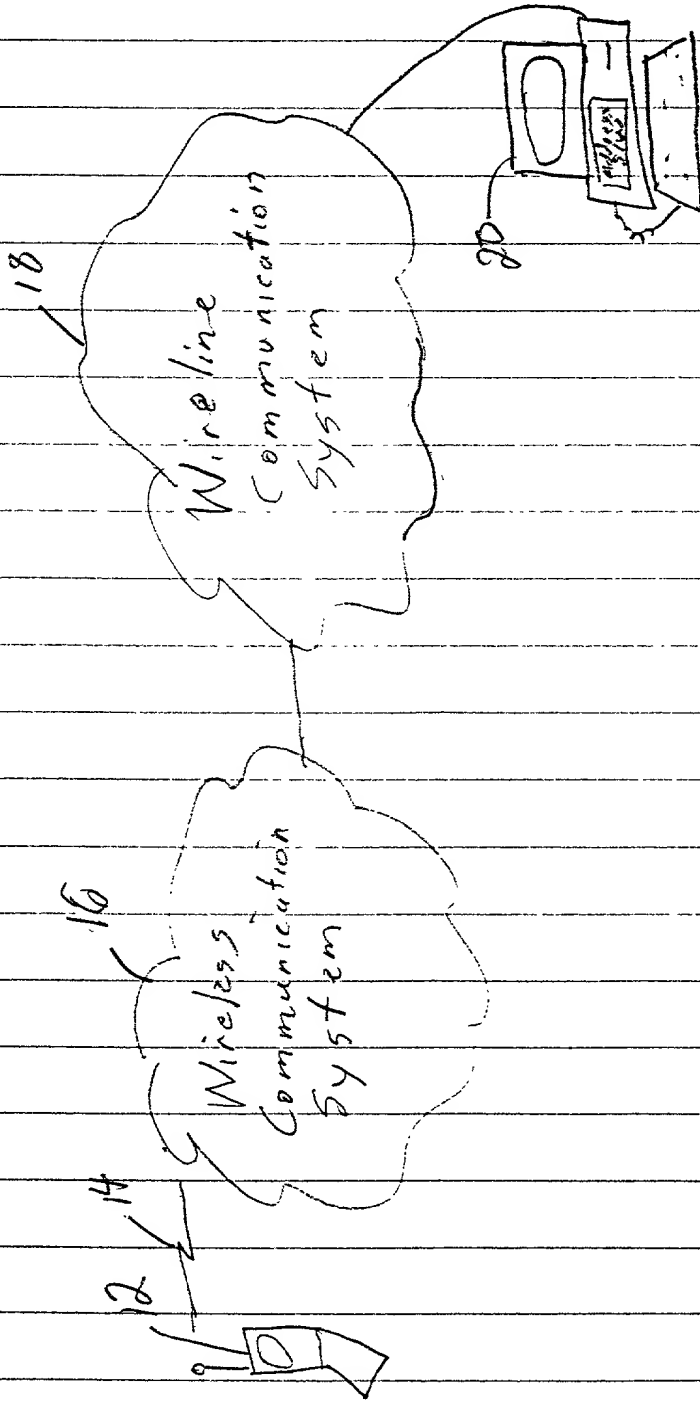 12
14
16
Wireless
Communication
System
18
Wireline
Communication
System
20